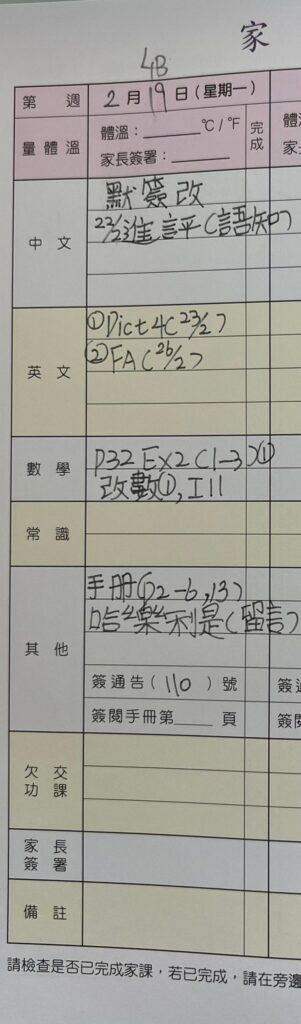 家
4B
第 週 2月19日(星期一)
量體溫 體溫:______℃/℉ 完成 體溫
家長簽署:______ 家長
中文 默簽改
22/2進評(語知)
英文 ①Dict 4(23/2)
②FA(26/2)
數學 P32 Ex2(1-3)①
改數①, I11
常識
其他 手册(P2-6,13)
哈樂利是(留言)
簽通告(110)號 簽通
簽閱手冊第____頁 簽閱
欠交功課
家長簽署
備註
請檢查是否已完成家課,若已完成,請在旁邊